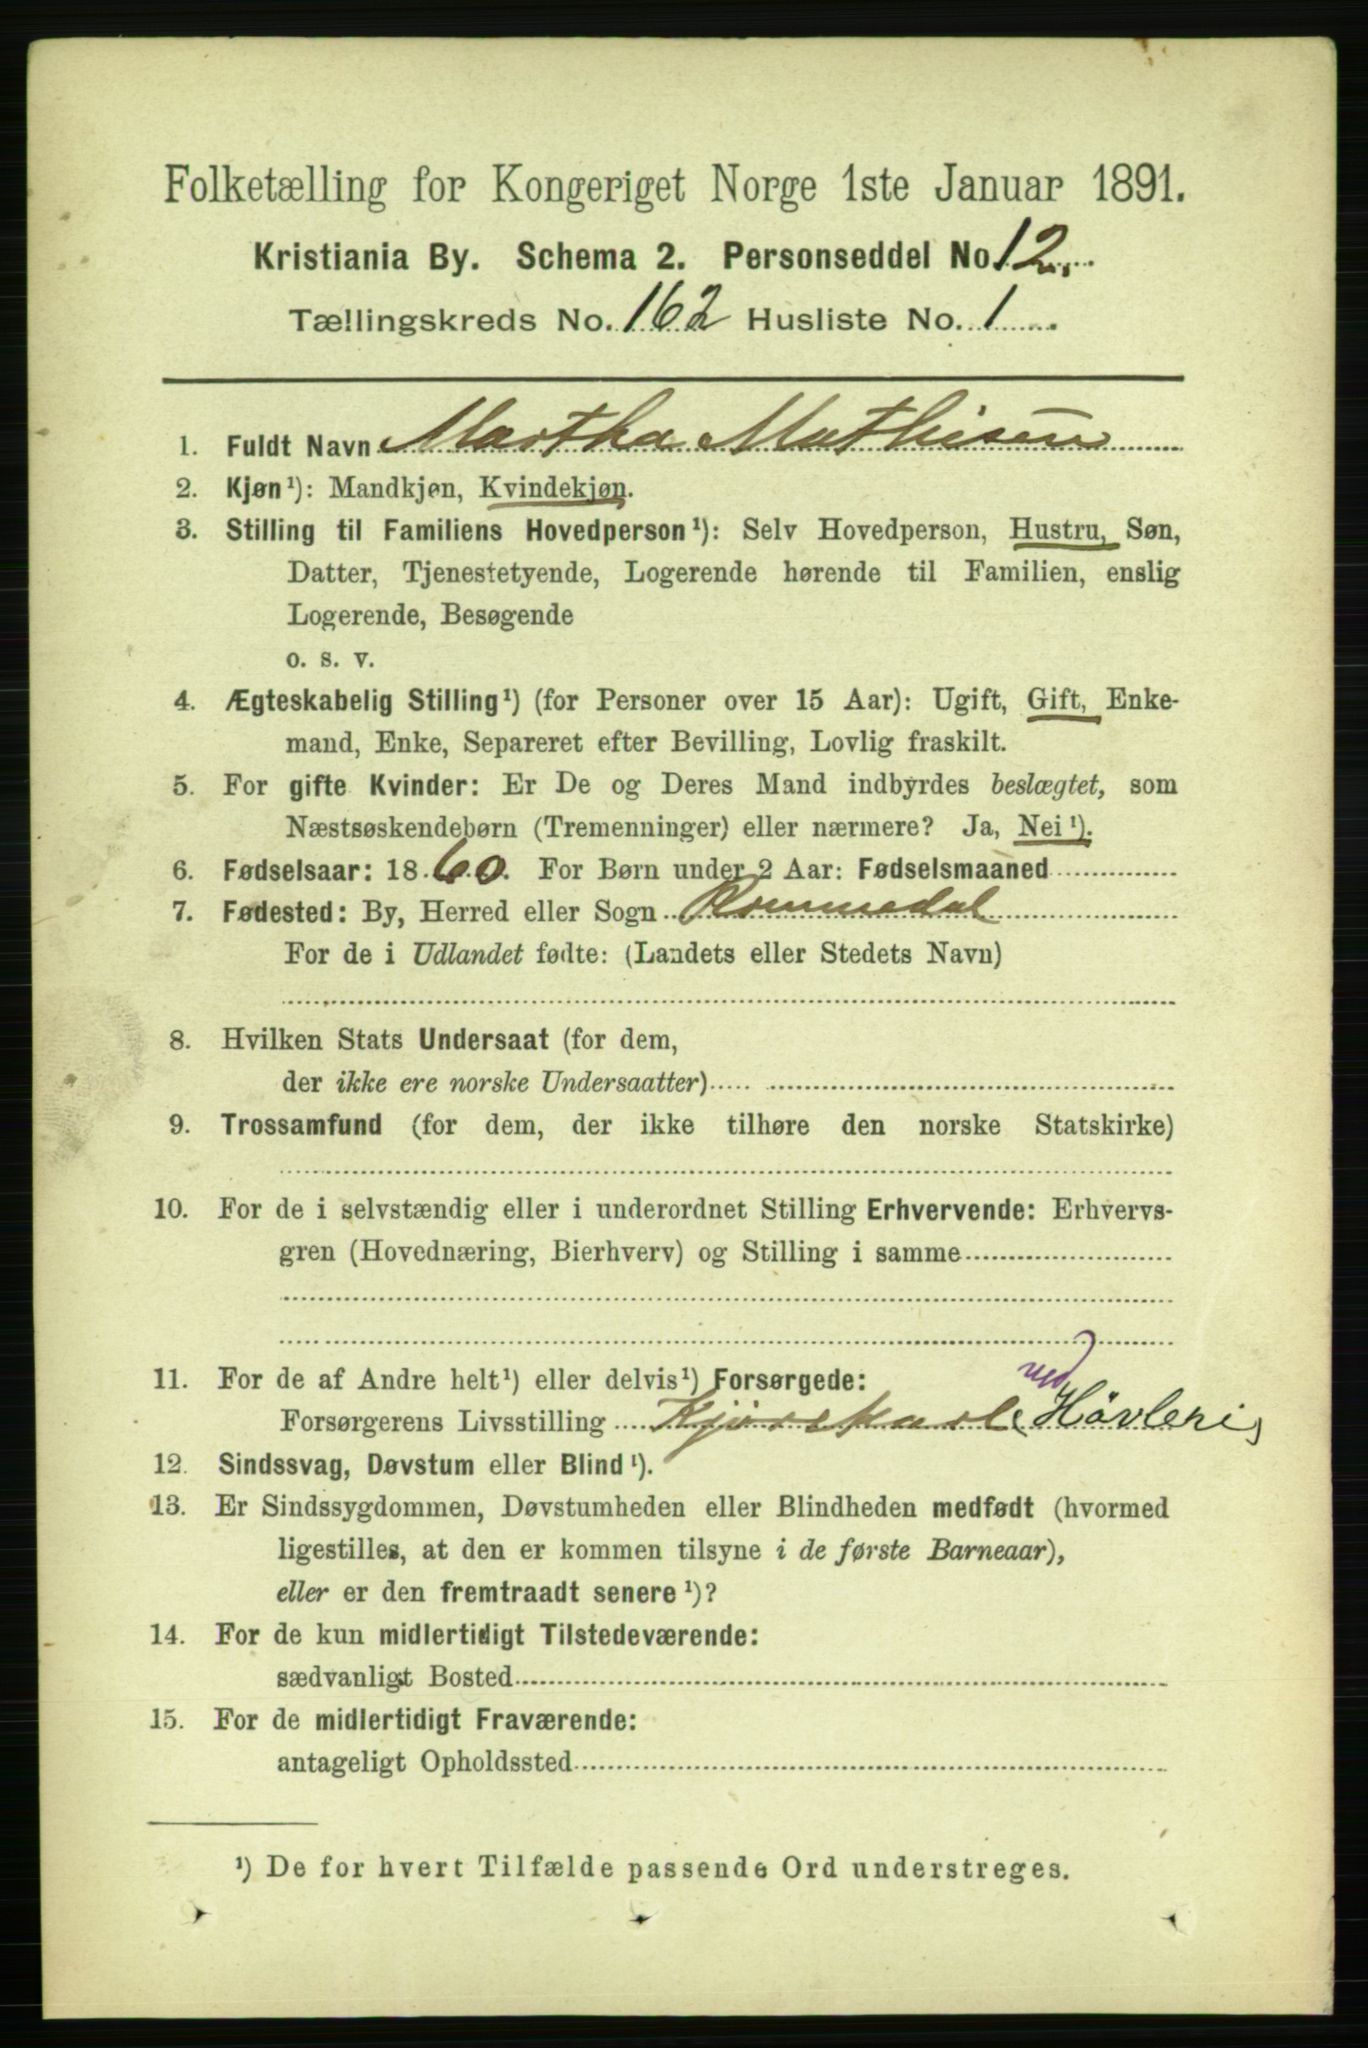 Folketælling for Kongeriget Norge 1ste Januar 1891.
Kristiania By. Schema 2. Personseddel No 12.
Tællingskreds No. 162 Husliste No. 1
1. Fuldt Navn Martha Mathisen
2. Kjøn¹): Mandkjøn, Kvindekjøn.
3. Stilling til Familiens Hovedperson¹): Selv Hovedperson, Hustru, Søn,
Datter, Tjenestetyende, Logerende hørende til Familien, enslig
Logerende, Besøgende
o. s. v.
4. Ægteskabelig Stilling¹) (for Personer over 15 Aar): Ugift, Gift, Enke-
mand, Enke, Separeret efter Bevilling, Lovlig fraskilt.
5. For gifte Kvinder: Er De og Deres Mand indbyrdes beslægtet, som
Næstsøskendebørn (Tremenninger) eller nærmere? Ja, Nei¹).
6. Fødselsaar: 1860. For Børn under 2 Aar: Fødselsmaaned
7. Fødested: By, Herred eller Sogn Rommedal
For de i Udlandet fødte: (Landets eller Stedets Navn)
8. Hvilken Stats Undersaat (for dem,
der ikke ere norske Undersaatter)
9. Trossamfund (for dem, der ikke tilhøre den norske Statskirke)
10. For de i selvstændig eller i underordnet Stilling Erhvervende: Erhvervs-
gren (Hovednæring, Bierhverv) og Stilling i samme
11. For de af Andre helt¹) eller delvis¹) Forsørgede:
Forsørgerens Livsstilling Kjørekarl ved Høvleri
12. Sindssvag, Døvstum eller Blind¹).
13. Er Sindssygdommen, Døvstumheden eller Blindheden medfødt (hvormed
ligestilles, at den er kommen tilsyne i de første Barneaar),
eller er den fremtraadt senere¹)?
14. For de kun midlertidigt Tilstedeværende:
sædvanligt Bosted
15. For de midlertidigt Fraværende:
antageligt Opholdssted
¹) De for hvert Tilfælde passende Ord understreges.